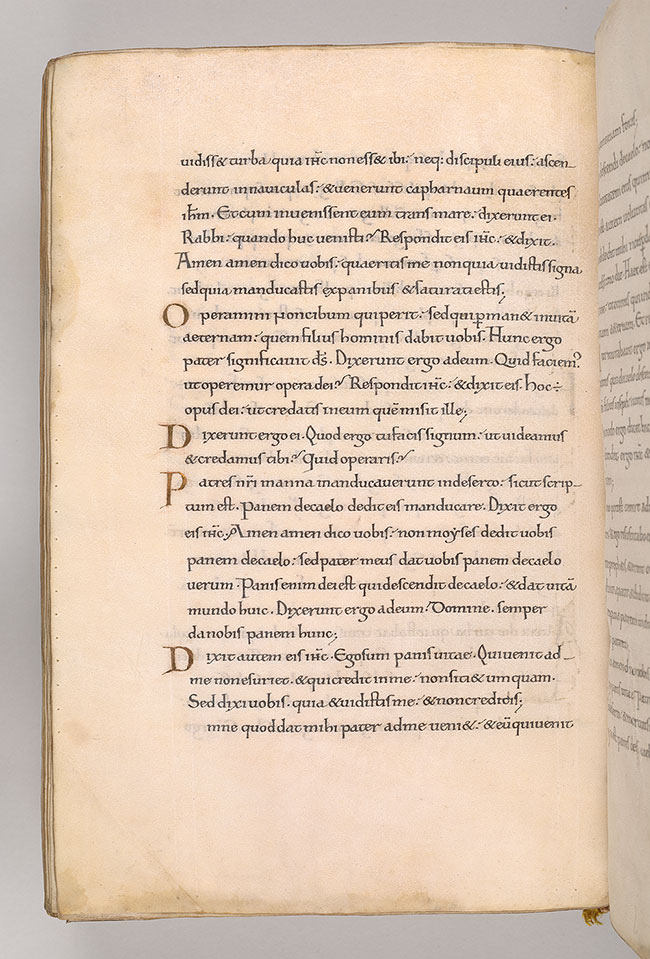 uidiss& turba quia ihc non ess& ibi: neq: discipuli eius: ascen-
derunt in nauiculas: & uenerunt capharnaum quaerentes
ihm. Et cum inuenissent eum trans mare: dixerunt ei.
Rabbi: quando huc uenisti? Respondit eis ihc: & dixit.
Amen amen dico uobis: quaeritis me non quia uidistis signa
sed quia manducastis ex panibus & saturati estis;
Operamini non cibum qui perit: sed qui pman& in uitā
aeternam: quem filius hominis dabit uobis. Hunc ergo
pater significauit ds. Dixerunt ergo ad eum. Quid faciem?
ut operemur opera dei? Respondit ihc: & dixit eis. Hoc ÷
opus dei: ut credatis in eum quē misit ille;
Dixerunt ergo ei. Quod ergo tu facis signum: ut uideamus
& credamus tibi? Quid operaris?
Patres nri manna manducauerunt in deserto: sicut scrip-
tum est. Panem de caelo dedit eis manducare. Dixit ergo
eis ihc. Amen amen dico uobis: non moyses dedit uobis
panem de caelo: sed pater meus dat uobis panem de caelo
uerum. Panis enim dei est qui descendit de caelo: & dat uitā
mundo huic. Dixerunt ergo ad eum. Domine. semper
da nobis panem hunc;
Dixit autem eis ihc. Ego sum panis uitae. Qui uenit ad-
me non esuriet. & qui credit in me: non siti& umquam.
Sed dixi uobis. quia & uidistis me: & non creditis;
mne quod dat mihi pater ad me ueni&: & eū qui uenit